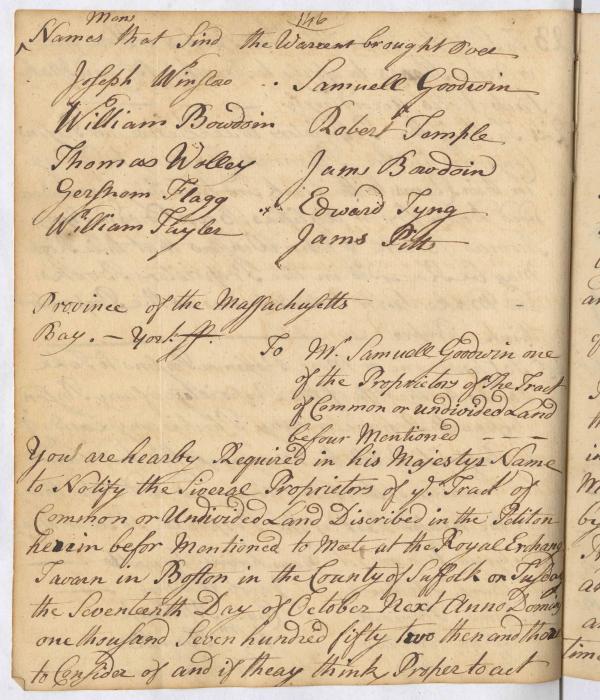 146
Mens
Names that Sind the Warrent brought over
Joseph Winslow Samuell Goodwin
William Bowdoin Robert Temple
Thomas Wolley Jams Bowdoin
Gershom Flagg Edward Tyng
William Tayler Jams Pitts
Province of the Massachusetts
Bay. — York. ss.
To Mr. Samuell Goodwin one
of the Proprietors of The Tract
of Common or undivided Land
befour Mentioned
You are hearby Required in his Majestys Name
to Notify the Siveral Proprietors of ye. Tract of
Common or Undivided Land Discribed in the Petiton
herein befor Mentioned to Meet at the Royal Exchang
Tavern in Boston in the County of Suffolk on Tusday
the Seventeenth Day of October Next Anno Domini
one thousand Seven hundred fifty two then and thare
to Consider of and if theay think Proper to act